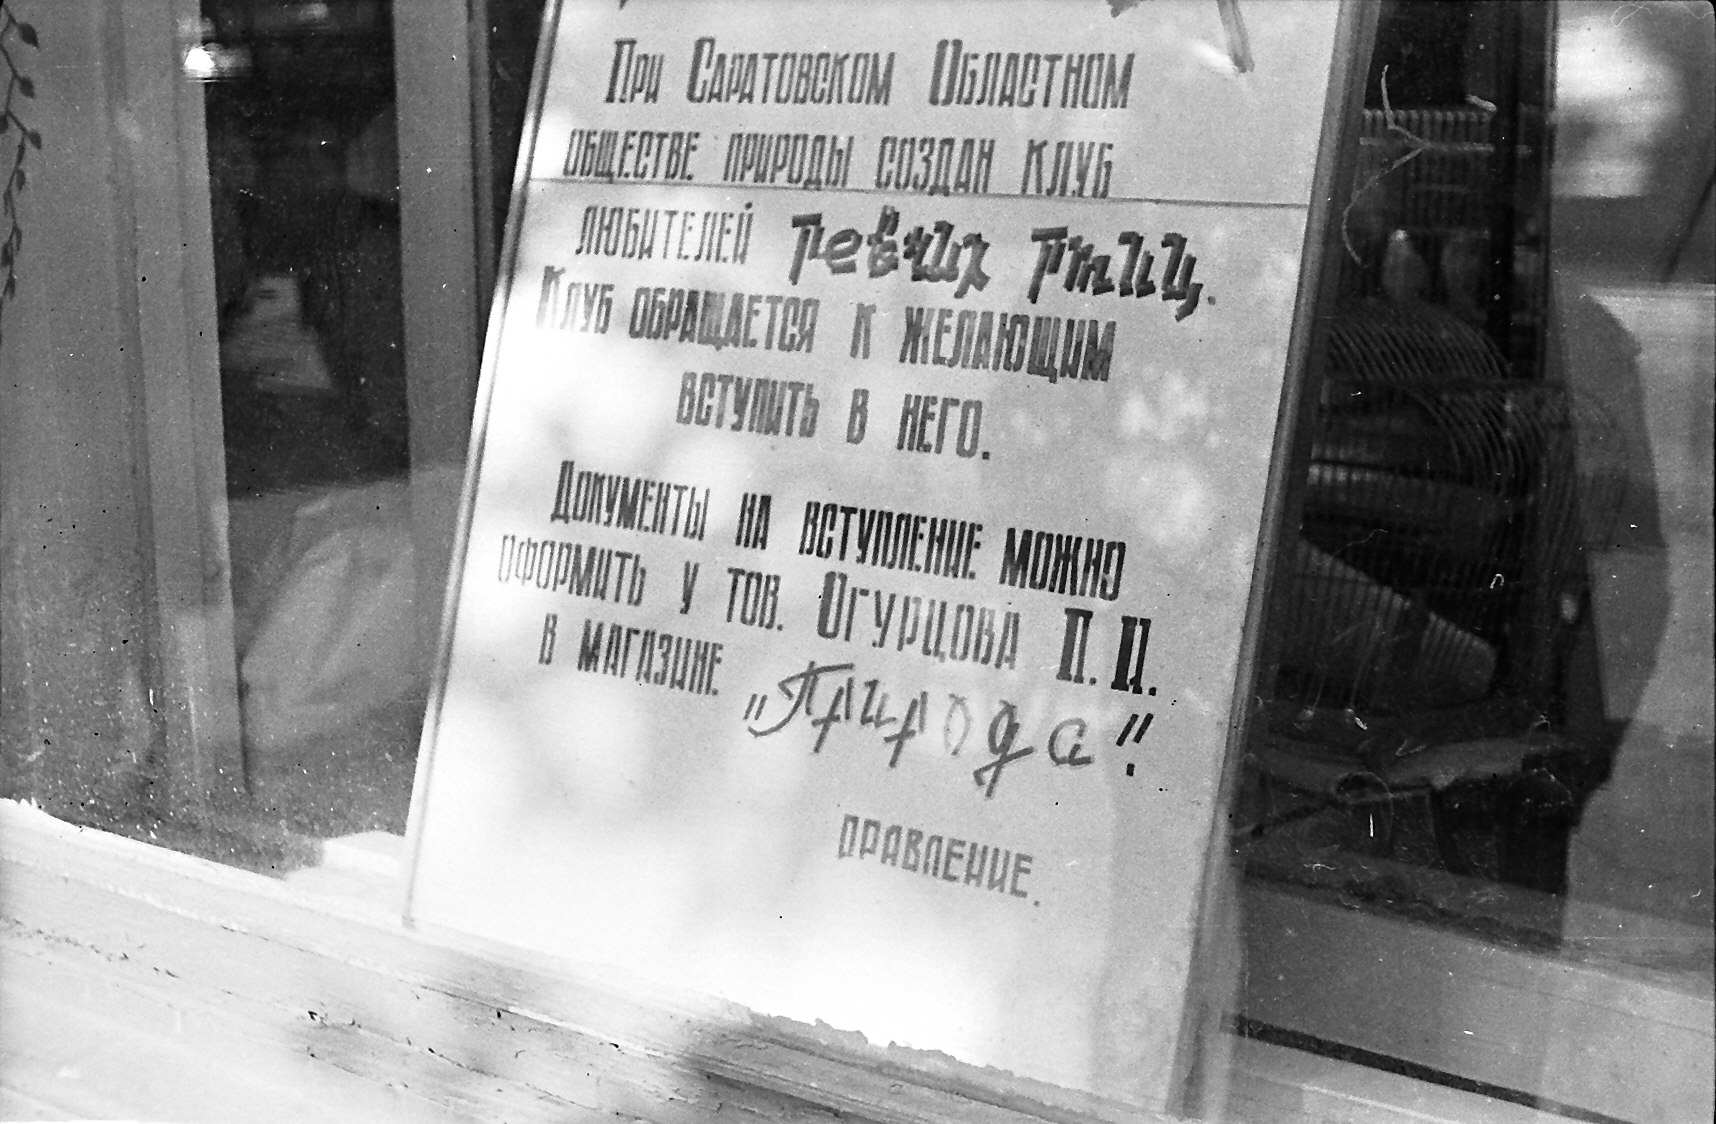 При Саратовском Областном
обществе природы создан клуб
любителей певчих птиц.
Клуб обращается к желающим
вступить в него.
Документы на вступление можно
оформить у тов. Огурцова П.И.
в магазине „Природа".
правление.